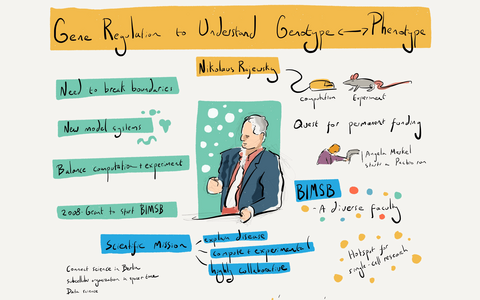 Gene Regulation to Understand Genotype <-> Phenotype
Nikolaus Rajewsky
Need to break boundaries
New model systems
Balance computation + experiment
2008: Grant to start BIMSB
computation
Experiment
Quest for permanent funding
Angela Merkel
starts a
BIMSB
- A diverse faculty
Scientific Mission
explain disease
compute + experimental
highly collaborative
Connect science in Berlin
subcellular organization in space + time
Data science
Hotspot for
single-cell research